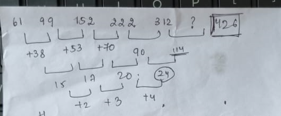 61 99 152 222 312 ? 426
+38 +53 +70 90 114
15 17 20 24
+2 +3 +4